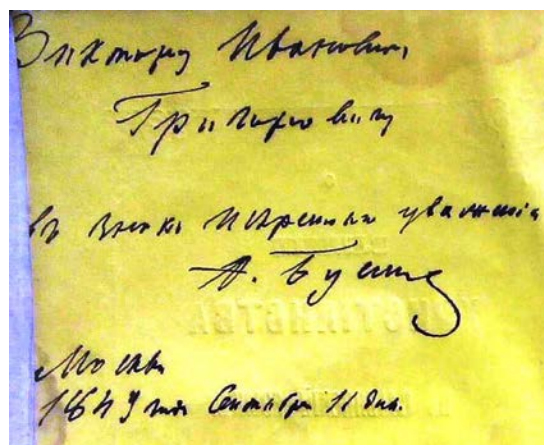 Виктору Ивановичу
Григоровичу
въ знакъ искренняго уваженія
Москва
Сентября 11 дня.